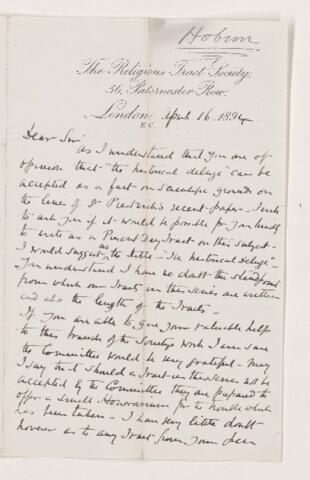 Hobson
The Religious Tract Society,
56, Paternoster Row,
London, April 16 - 1894
E.C.
Dear Sir
As I understand that you are of
opinion that "the historical deluge" can be
accepted as a fact on scientific grounds on
the lines of Dr Prestwich's recent paper - I write
to ask you if it would be possible for you kindly
to write us a Present Day Tract on this subject -
I would suggest as the title - "The historical deluge" -
You understand I have no doubt the standpoint
from which our Tracts in this series are written
and also the length of the Tracts -
If you are able to give your valuable help
to this branch of the Society's work I am sure
the Committee would be very grateful - May
I say that should a Tract in this series not be
accepted by the Committee they are prepared to
offer a small Honorarium for the trouble which
has been taken - I have very little doubt
however as to any Tract from your pen